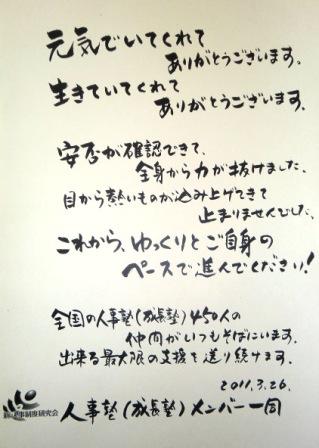 元気でいてくれて
ありがとうございます。
生きていてくれて
ありがとうございます。
安否が確認できて、
全身から力が抜けました。
目から熱いものが込み上げてきて
止まりませんでした。
これから、ゆっくりとご自身の
ペースで進んでください!
全国の人事塾(成長塾)450人の
仲間がいつもそばにいます。
出来る最大限の支援を送り続けます。
2011.3.26.
人事制度研究会
人事塾(成長塾)メンバー一同